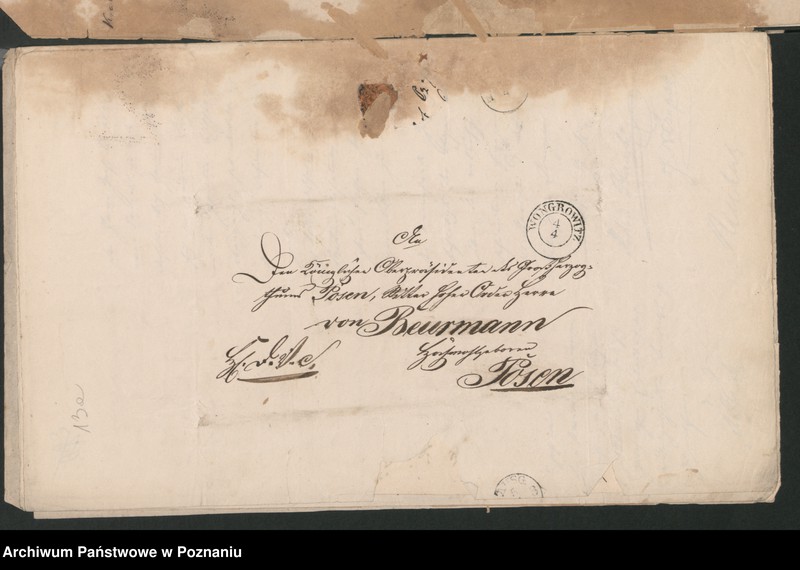 WONGROWITZ
4
4
An
Den Königlichen Oberpräsidenten des Großherzog-
thums Posen, Ritter hoher Orden Herrn
von Beurmann
Hochwohlgeboren
Posen
13a
Archiwum Państwowe w Poznaniu